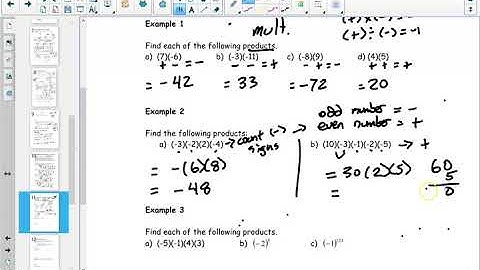 mult.
(+) ÷ (-) = -1
Example 1
Find each of the following products.
a) (7)(-6) b) (-3)(-11) c) (-8)(9) d) (4)(5)
+ - = - - - = + - + = - + + = +
= -42 = 33 = -72 = 20
Example 2
odd number = -
even number = +
Find the following products:
a) (-3)(-2)(2)(-4) → count (-) → signs b) (10)(-3)(-1)(-2)(-5) → +
= -(6)(8) = 30(2)(5) 60
= -48 = 5
0
Example 3
Find each of the following products.
a) (-5)(-1)(4)(3) b) (-2)